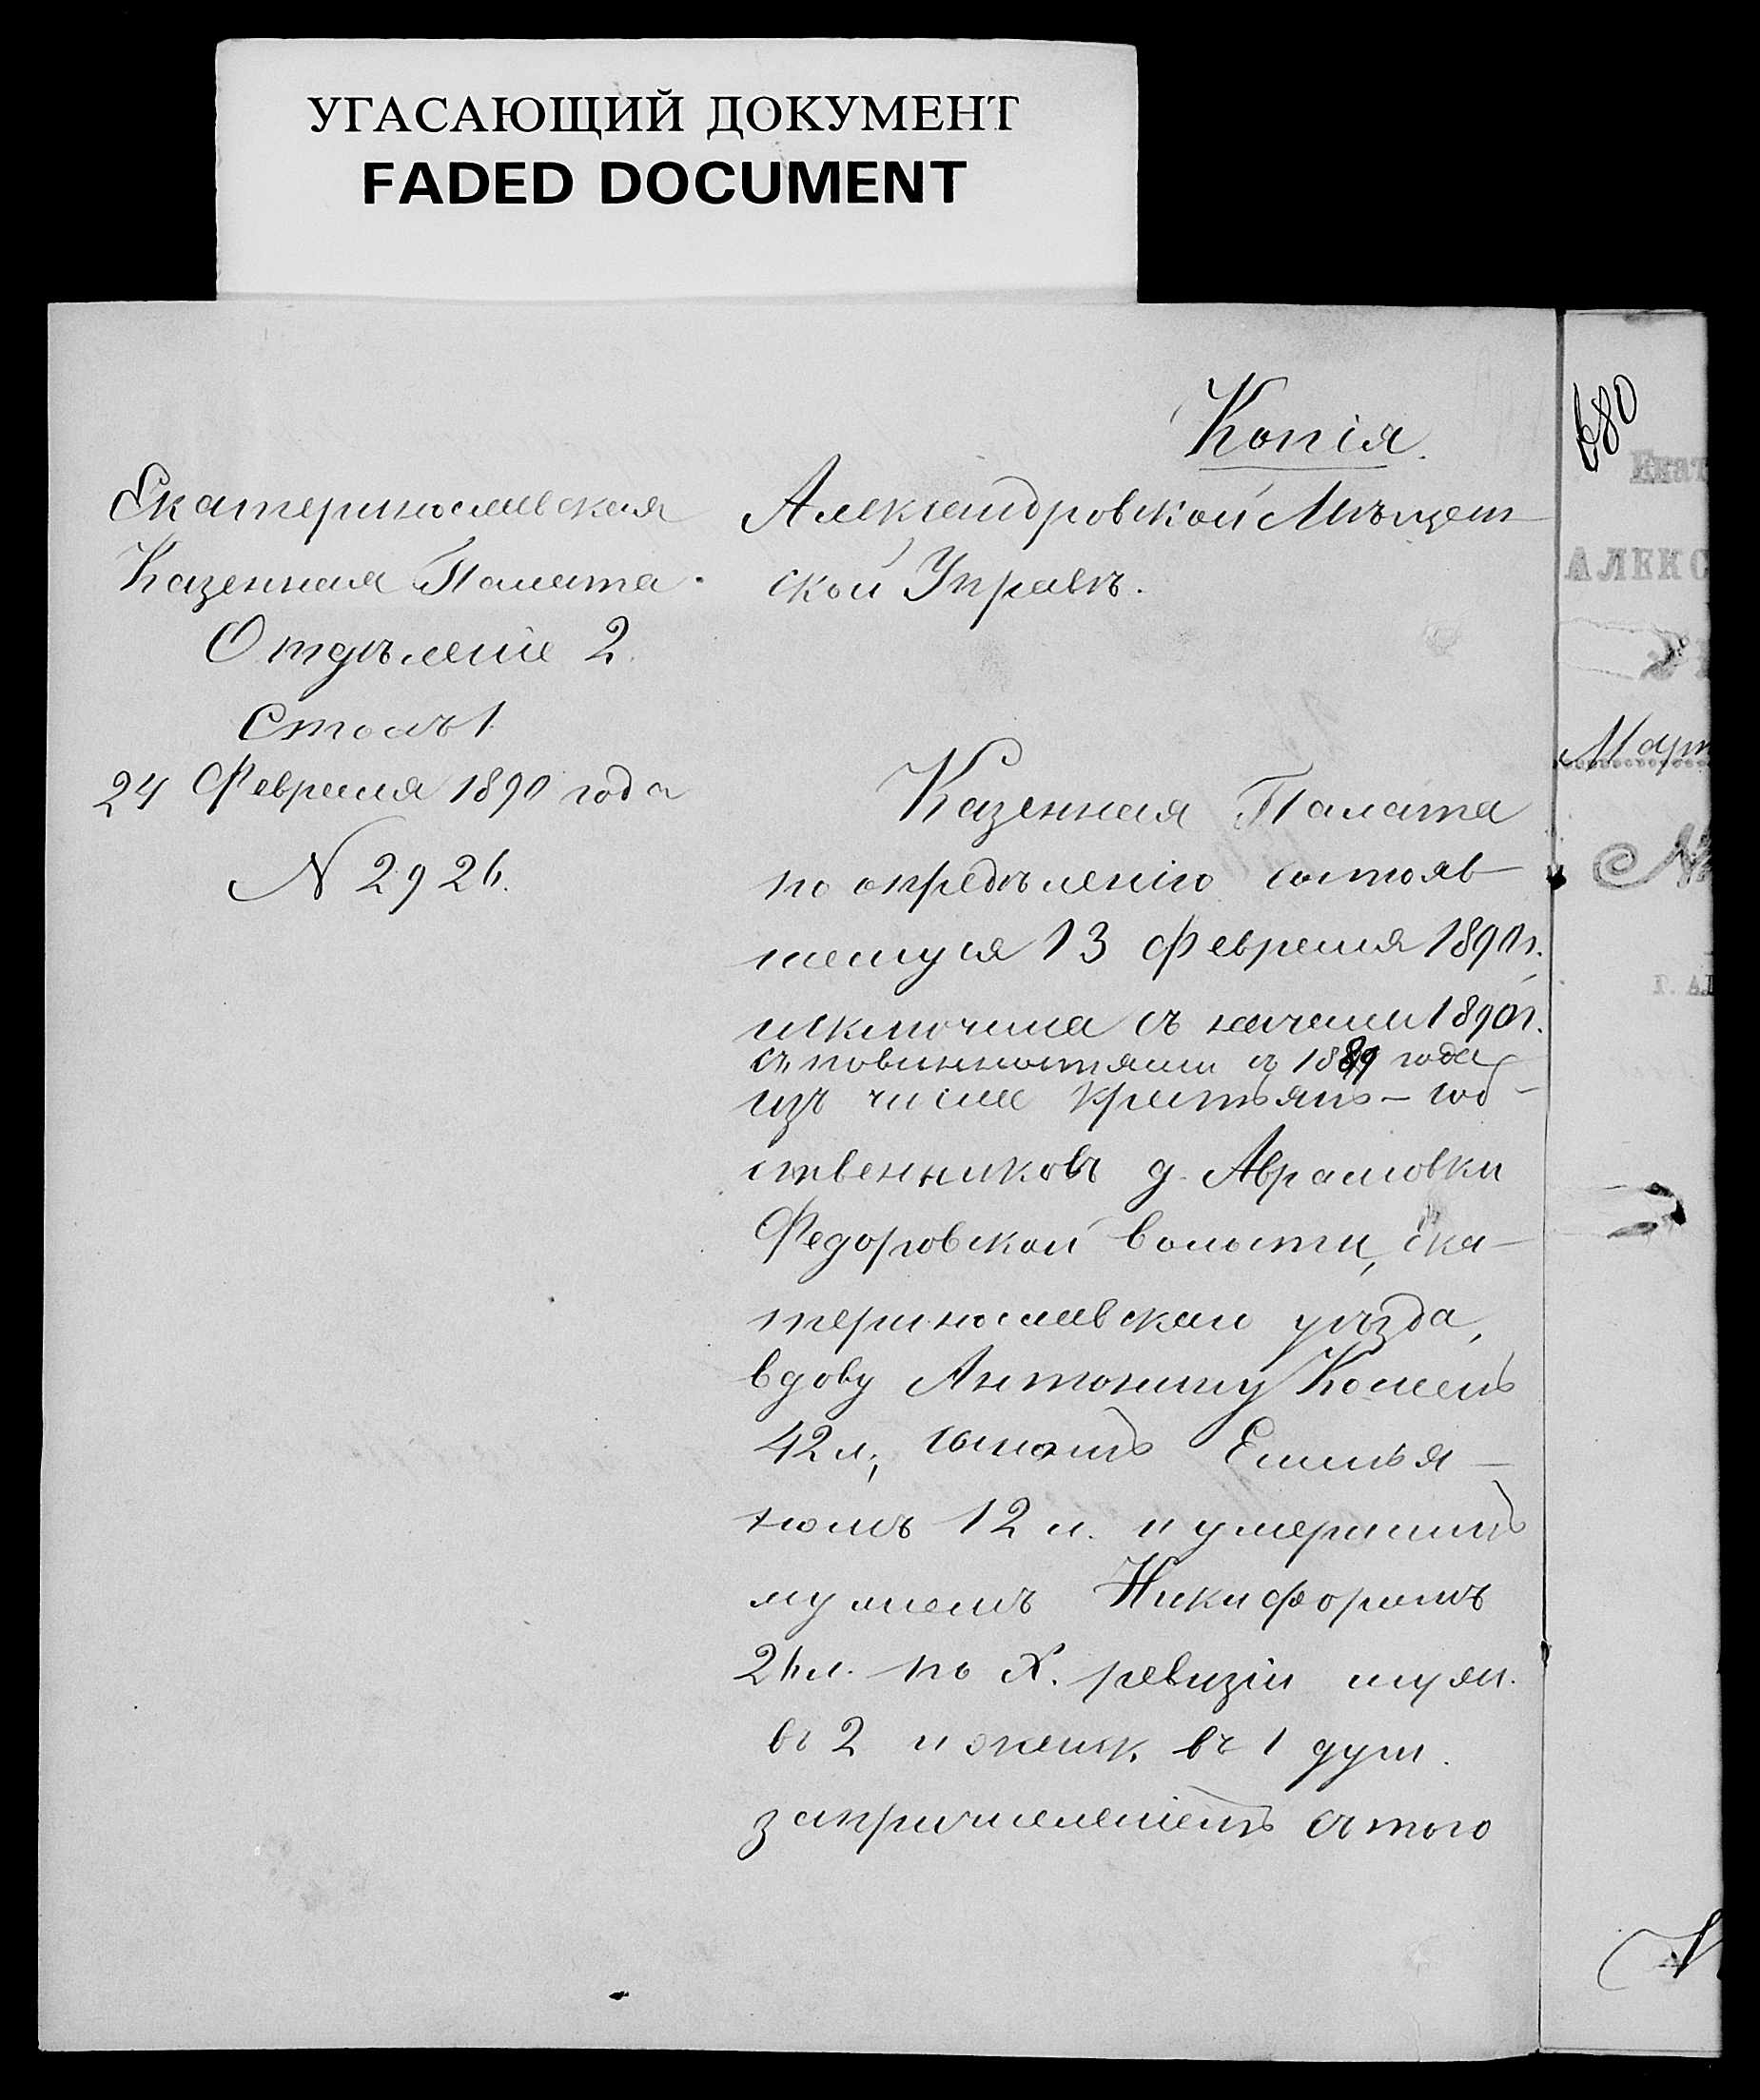 УГАСАЮЩИЙ ДОКУМЕНТ
FADED DOCUMENT
Копія.
Екатеринославская
Казенная Палата.
Отдѣленіе 2.
Столъ 1.
24 Февраля 1890 года
N 2926.
Александровской Мѣщан-
ской Управѣ.
Казенная Палата
по опредѣленію состояв-
шемуся 13 Февраля 1890 г.
исключила съ начала 1890 г.
съ повинностями съ 1889 года
изъ числа крестьянъ-соб-
ственниковъ д. Аврамовки
Федоровской волости, Ека-
теринославскаго уѣзда,
вдову Антонину
42 л., сыномъ Емелья-
номъ 12 л. и умершимъ
мужемъ Никифоромъ
26 л. по X. ревизіи муж.
въ 2 и женск. въ 1 душ.
за причисленіемъ съ того
680
Екат
АЛЕКС
Март
N
Г. АЛ